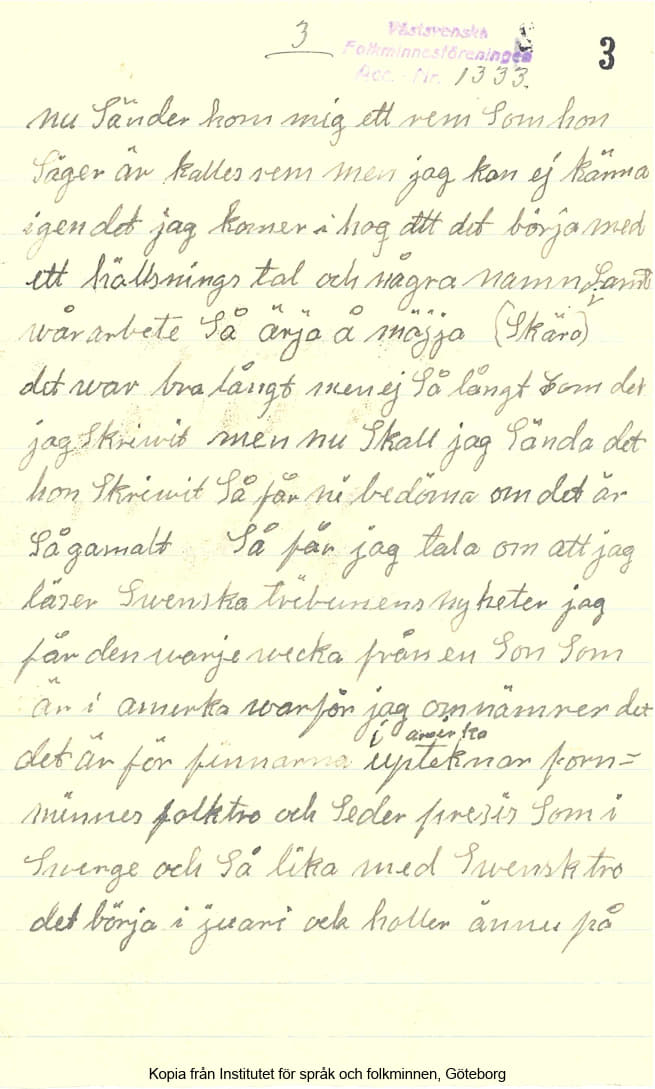 3
Västsvenska
Folkminnesföreningen
Acc. Nr. 1333.
3
nu Sänder hom mig ett rem Som hon
Säger är kalles rem men jag kan ej känna
igen det jag komer i hog att det börja med
ett hällsnings tal och några namn Samt
wår arbete Så ärja å mäjja (Skära)
det war bra långt men ej Så långt Som det
jag Skriwit men nu Skall jag Sända det
hon Skriwit Så får ni bedöma om det är
Så gamalt Så får jag tala om att jag
läser Swenska tribunens nyheter jag
får den warje wecka från en Son Som
är i amerka warför jag omnämner det
i amerka
det är för finnarna upteknar forn=
minnes folktro och Seder presis Som i
Swerge och Så lika med Swensk tro
det börja i juari och holler ännu på
Kopia från Institutet för språk och folkminnen, Göteborg